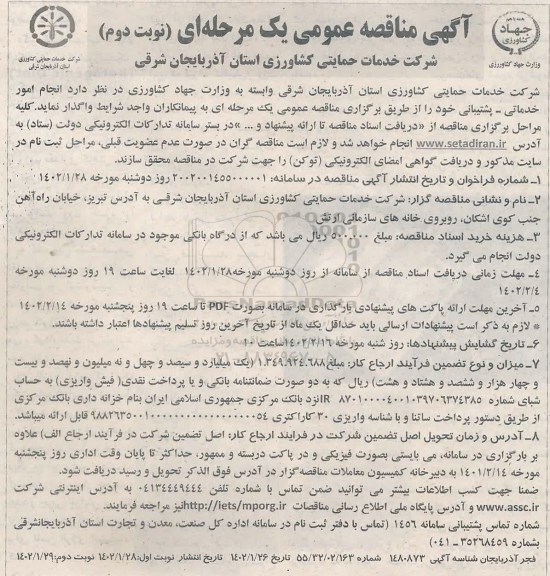 آگهی مناقصه عمومی یک مرحله‌ای (نوبت دوم)
شرکت خدمات حمایتی کشاورزی استان آذربایجان شرقی
جهاد
کشاورزی
وزارت جهاد کشاورزی
شرکت خدمات حمایتی کشاورزی
استان آذربایجان شرقی
شرکت خدمات حمایتی کشاورزی استان آذربایجان شرقی وابسته به وزارت جهاد کشاورزی در نظر دارد انجام امور
خدماتی ـ پشتیبانی خود را از طریق برگزاری مناقصه عمومی یک مرحله ای به پیمانکاران واجد شرایط واگذار نماید. کلیه
مراحل برگزاری مناقصه از «دریافت اسناد مناقصه تا ارائه پیشنهاد و ... » در بستر سامانه تدارکات الکترونیکی دولت (ستاد) به
آدرس www.setadiran.ir انجام خواهد شد و لازم است مناقصه گران در صورت عدم عضویت قبلی، مراحل ثبت نام در
سایت مذکور و دریافت گواهی امضای الکترونیکی (توکن) را جهت شرکت در مناقصه محقق سازند.
۱ـ شماره فراخوان و تاریخ انتشار آگهی مناقصه در سامانه: ۲۰۰۲۰۰۱۴۵۵۰۰۰۰۰۱ روز دوشنبه مورخه ۱۴۰۲/۱/۲۸
۲ـ نام و نشانی مناقصه گزار: شرکت خدمات حمایتی کشاورزی استان آذربایجان شرقی به آدرس تبریز، خیابان راه‌آهن
جنب کوی اشکان، روبروی خانه های سازمانی ارتش
۳ـ هزینه خرید اسناد مناقصه: مبلغ ۵۰۰.۰۰۰ ریال می باشد که از درگاه بانکی موجود در سامانه تدارکات الکترونیکی
دولت انجام می گیرد.
۴ـ مهلت زمانی دریافت اسناد مناقصه از سامانه از روز دوشنبه مورخه ۱۴۰۲/۱/۲۸ لغایت ساعت ۱۹ روز دوشنبه مورخه
۱۴۰۲/۲/۴
۵ـ آخرین مهلت ارائه پاکت های پیشنهادی بارگذاری در سامانه بصورت PDF تا ساعت ۱۹ روز پنجشنبه مورخه ۱۴۰۲/۲/۱۴
* لازم به ذکر است پیشنهادات ارسالی باید حداقل یک ماه از تاریخ آخرین روز تسلیم پیشنهادها اعتبار داشته باشند.
۶ـ تاریخ گشایش پیشنهادها: روز شنبه مورخه ۱۴۰۲/۲/۱۶ ساعت ۱۰
۷ـ میزان و نوع تضمین فرآیند ارجاع کار: مبلغ ۱.۳۴۹.۹۲۴.۶۸۸ (یک میلیارد و سیصد و چهل و نه میلیون و نهصد و بیست
و چهار هزار و ششصد و هشتاد و هشت) ریال که به دو صورت ضمانتنامه بانکی و یا پرداخت نقدی( فیش واریزی) به حساب
شبای شماره IR ۸۷۰۱۰۰۰۰۴۰۰۱۰۳۹۷۰۶۳۷۴۳۸۵ نزد بانک مرکزی جمهوری اسلامی ایران بنام خزانه داری بانک مرکزی
از طریق دستور پرداخت ساتنا و با شناسه واریزی ۳۰ کاراکتری قابل ارائه میباشد.
۸ـ آدرس و زمان تحویل اصل تضمین شرکت در فرایند ارجاع کار: اصل تضمین شرکت در فرآیند ارجاع الف) علاوه
بر بارگزاری در سامانه، می بایستی بصورت فیزیکی و در پاکت دربسته و ممهور، حداکثر تا پایان وقت اداری روز پنجشنبه
مورخه ۱۴۰۱/۲/۱۴ به دبیرخانه کمیسیون معاملات مناقصه‌گزار در آدرس فوق الذکر تحویل و رسید دریافت شود.
ضمنا جهت کسب اطلاعات بیشتر می توانید ضمن تماس با شماره تلفن ۰۴۱۳۴۴۴۹۴۴۴ به آدرس اینترنتی شرکت
www.assc.ir و آدرس پایگاه ملی اطلاع رسانی مناقصات http://iets/mporg.ir نیز مراجعه فرمایند.
شماره تماس پشتیبانی سامانه ۱۴۵۶ (تماس با دفتر ثبت نام در سامانه اداره کل صنعت، معدن و تجارت استان آذربایجانشرقی
بشماره ۳۵۲۶۸۴۵۹ ـ ۰۴۱)
فجر آذربایجان شناسه آگهی ۱۴۸۰۸۷۳ شماره ۵۵/۳۲/۰۲/۱۶۳ تاریخ ۱۴۰۲/۱/۲۶ تاریخ انتشار نوبت اول: ۱۴۰۲/۱/۲۸ نوبت دوم: ۱۴۰۲/۱/۲۹